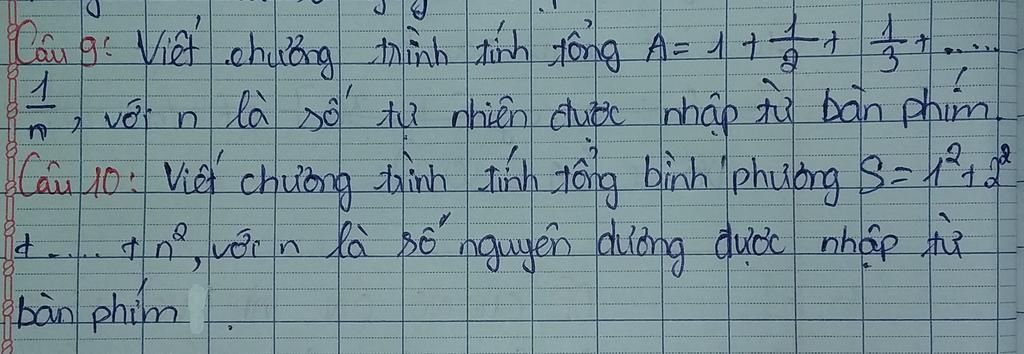 Câu 9: Viết chương trình tính tổng A = 1 + 1/2 + 1/3 + .....
1/n, với n là số tự nhiên được nhập từ bàn phím
Câu 10: Viết chương trình tính tổng bình phương S = 1² + 2²
+ ..... + n², với n là số nguyên dương được nhập từ
bàn phím .